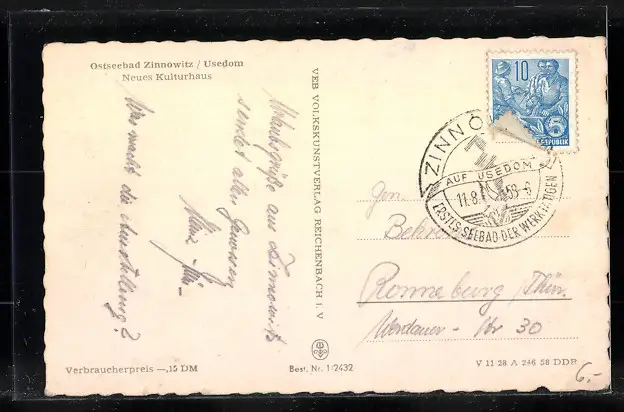 Ostseebad Zinnowitz / Usedom
Neues Kulturhaus
Urlaubsgrüße aus Zinnowitz
sendet allen
Was macht die Ausstellung?
VEB VOLKSKUNSTVERLAG REICHENBACH I. V
10
5
REPUBLIK
ZINNO
AUF USEDOM
11.8. 58-8
ERSTES SEEBAD DER WERKTÄTIGEN
Gen.
Ronneburg /Thür.
Werdauer - Str 30
Verbraucherpreis —,15 DM
Best. Nr. 1/2432
V 11 28 A 246 58 DDR
6.-